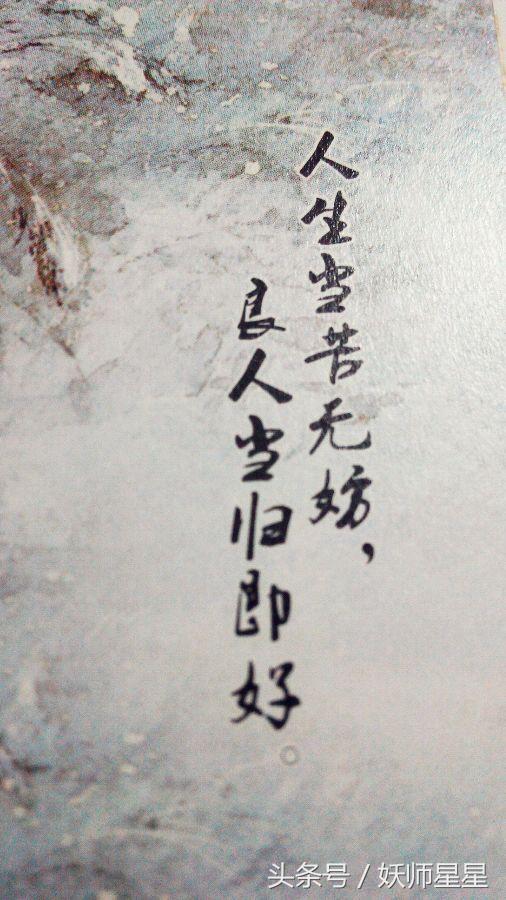 人生当苦无妨，
良人当归即好。
头条号 / 妖师星星